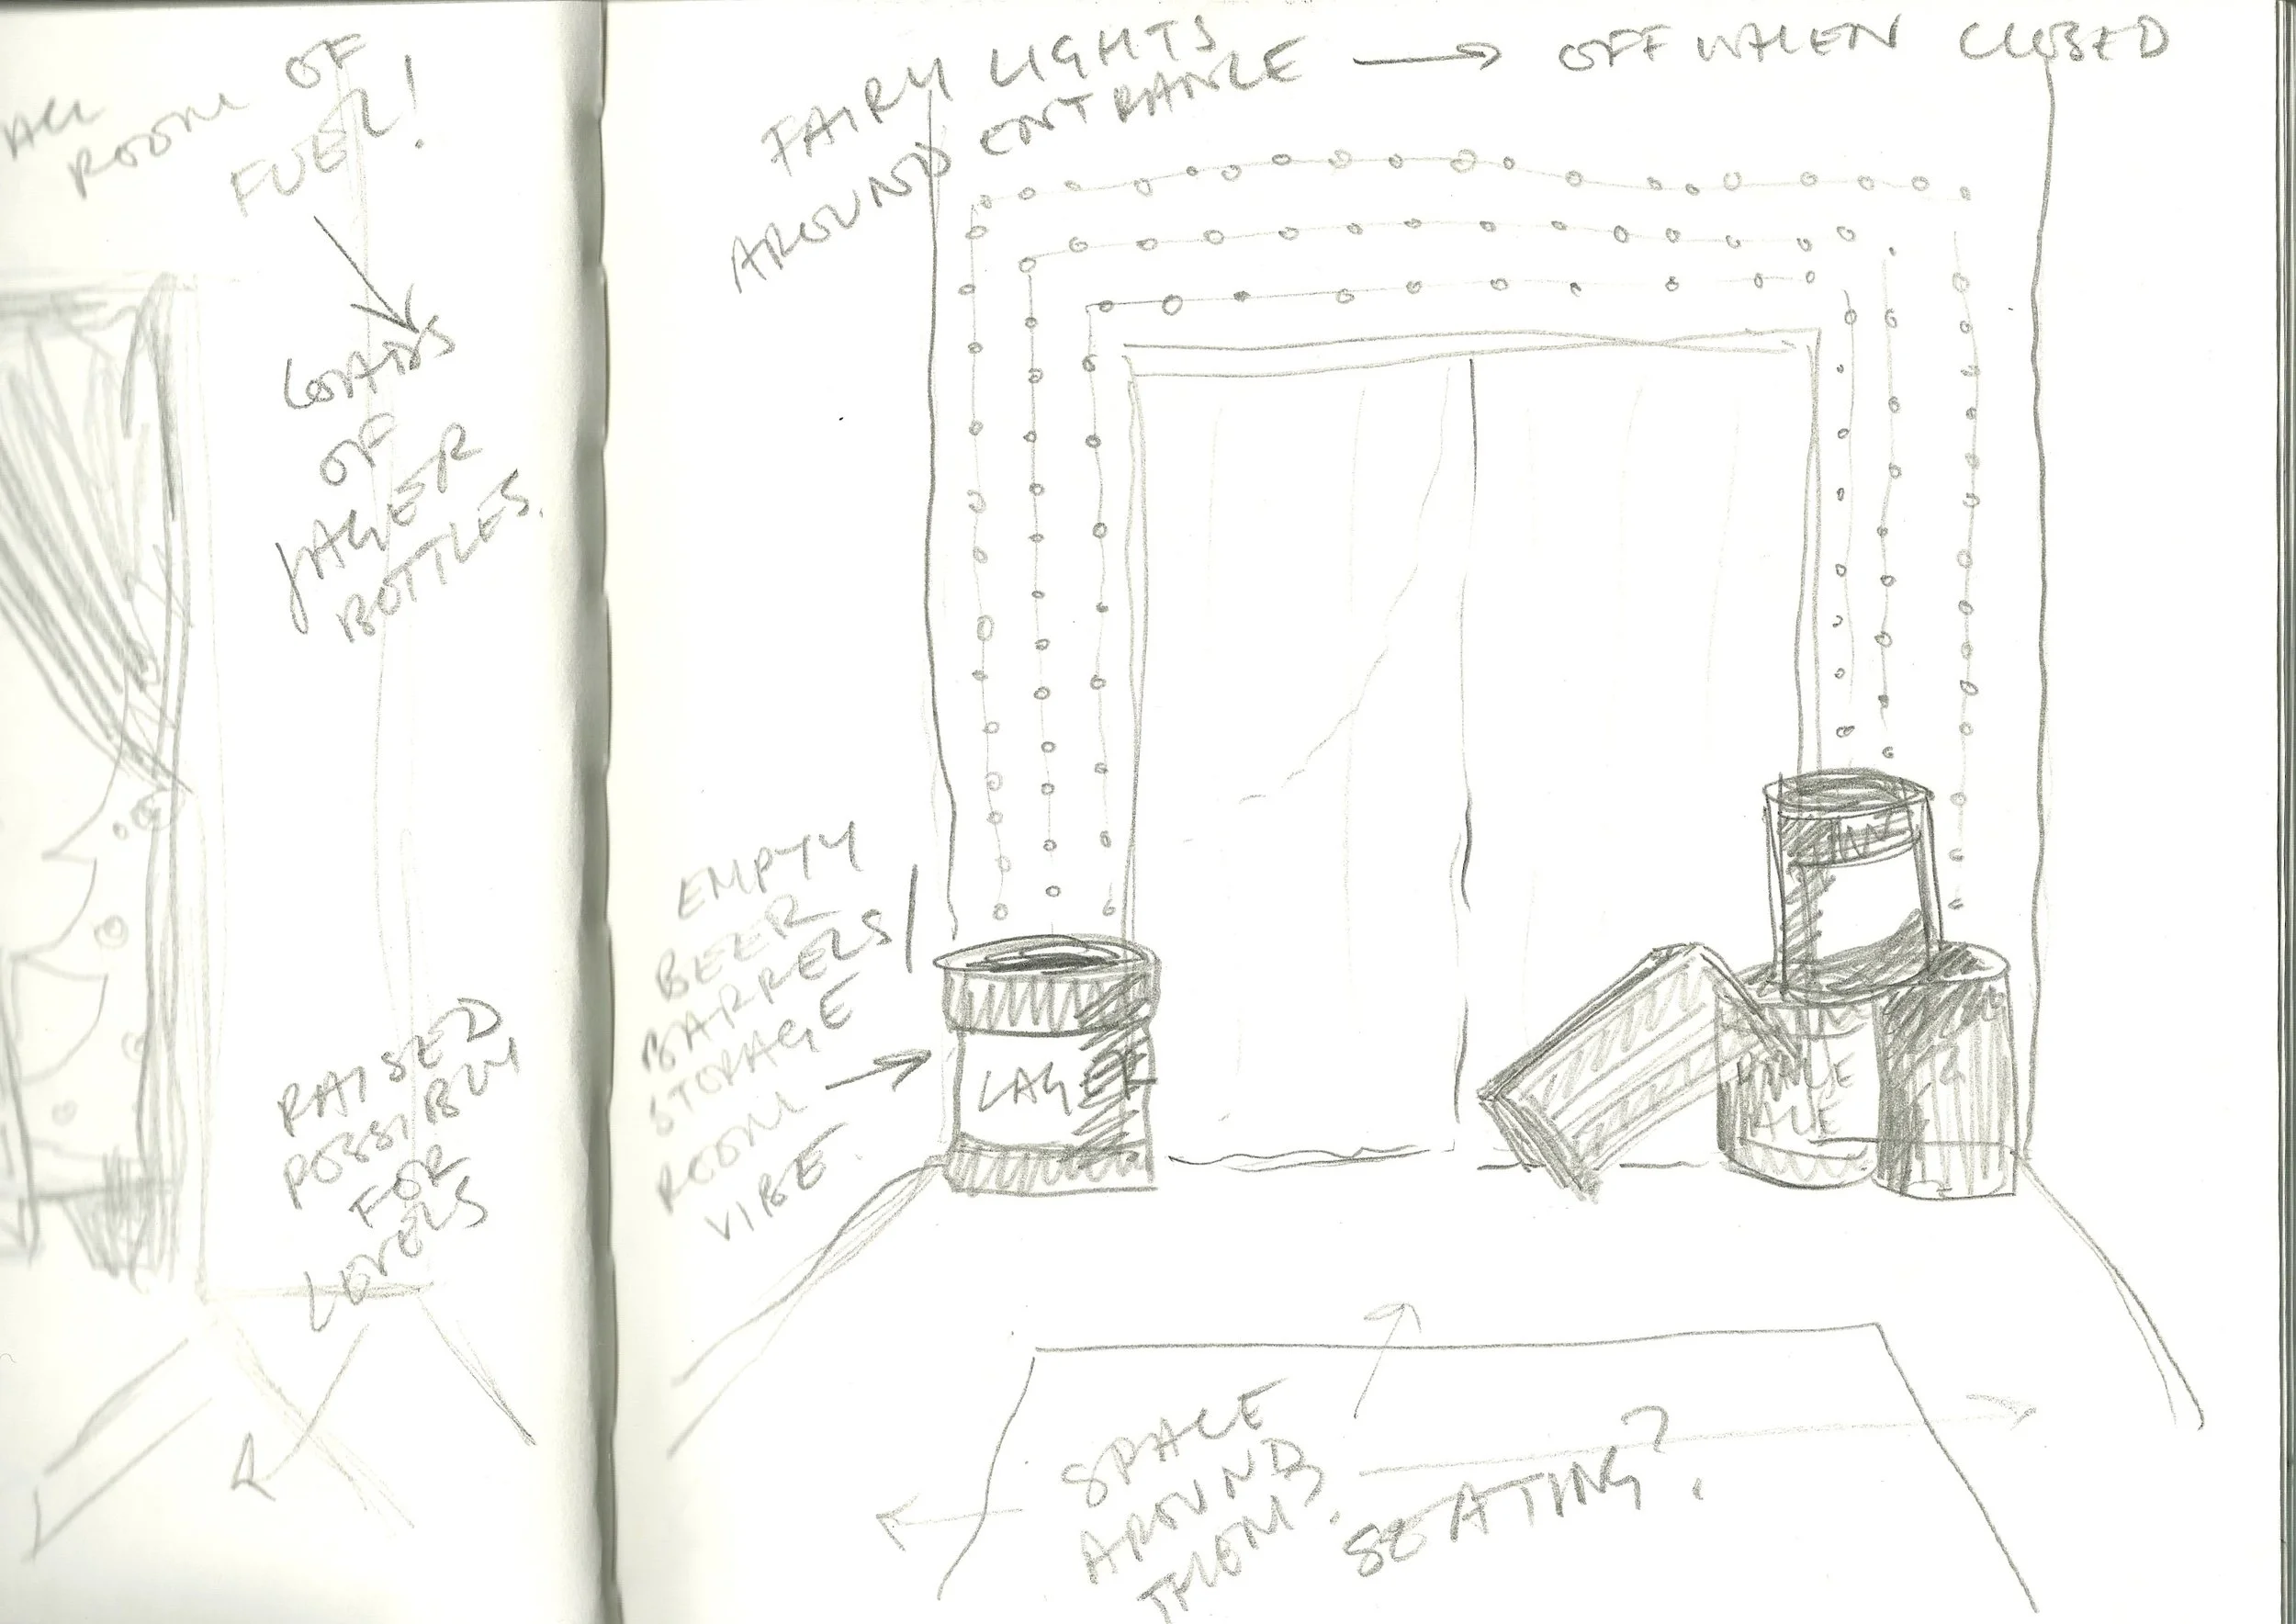 ROOM OF
FUEL!
LOADS
OF
JAGER
BOTTLES.
RAISED
POSSIBLY
FOR
LEVELS
FAIRY LIGHTS
AROUND ENTRANCE → OFF WHEN CLOSED
EMPTY
BEER
BARRELS/
STORAGE
ROOM →
VIBE
LAGER
PALE
ALE
SPACE
AROUND
THEM.
SEATING?